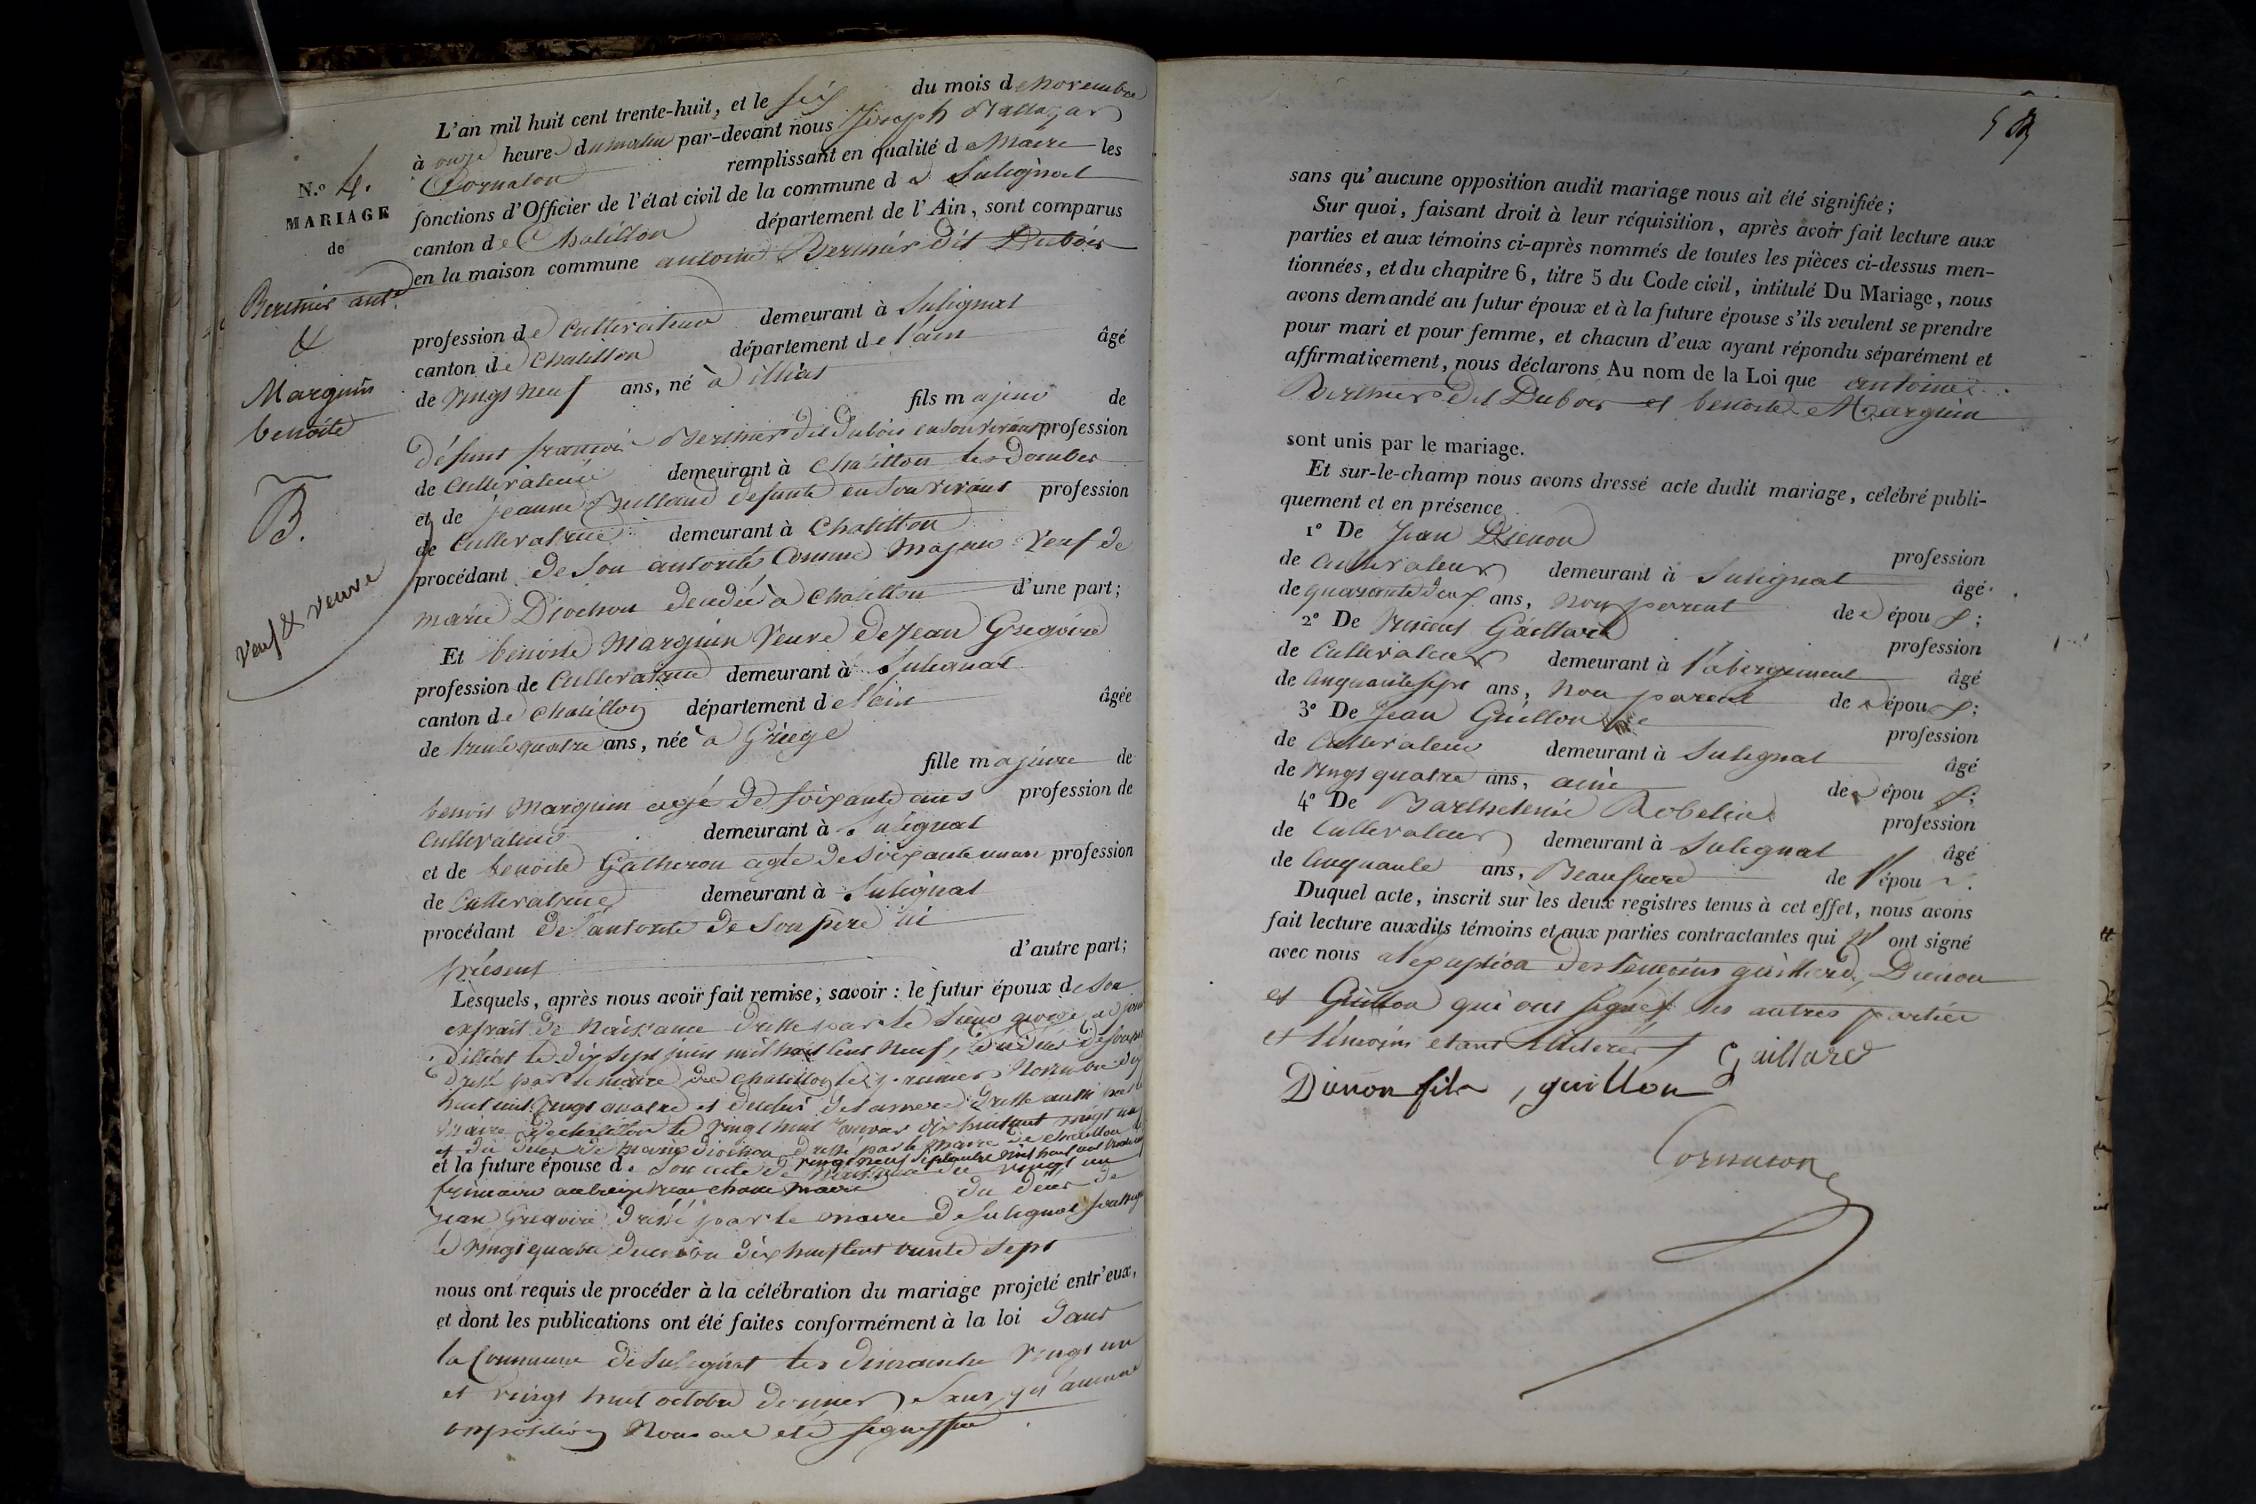 L'an mil huit cent trente-huit, et le six du mois de Novembre
à onze heure du matin par-devant nous Joseph
Cornaton remplissant en qualité de Maire les
fonctions d'Officier de l'état civil de la commune de Sulignat
canton de Chatillon département de l'Ain, sont comparus
en la maison commune antoine Berthier dit Dubois
N.o 4.
MARIAGE
de
Berthier ant.e
&
Marguin
benoite
B.
Veuf & Veuve
profession de Cultivateur demeurant à Sulignat
canton de Chatillon département de l'ain âgé
de vingt neuf ans, né à illiat
fils majeur de
défunt francois Berthier dit dubois en son vivant profession
de Cultivateur demeurant à Chatillon les Dombes
et de jeanne defunte en son vivant profession
de Cultivatrice demeurant à Chatillon
procédant de son autorité Comme Majeur Veuf de
marie Diochon décédée à Chatillon d'une part;
Et benoite Marguin Veuve de Jean Gregoire
profession de Cultivatrice demeurant à Sulignat
canton de Chatillon département de l'ain âgée
de trente quatre ans, née à Griège
fille majeure de
benoit Marguin agé de soixante ans profession de
Cultivateur demeurant à Sulignat
et de benoite Gatheron agée de soixante un an profession
de Cultivatrice demeurant à Sulignat
procédant de l'autorité de son père ici
présent d'autre part;
Lesquels, après nous avoir fait remise, savoir: le futur époux de son
extrait de Naissance dressé par le Sieur
d'illiat le dix sept juin mil huit Cent Neuf, du décès de son père
dressé par le maire de Chatillon le premier Novembre dix
huit cent vingt quatre et du décès de sa mere dressé aussi par le
maire de chatillon le vingt huit janvier dix huit cent vingt un
et du décès de marie diochon dressé par le Maire de Chatillon le
vingt neuf Septembre mil huit cent
et la future épouse de Son acte de Naissance du vingt un
frimaire an treize maire du décès de
Jean Gregoire dressé par le maire de Sulignat
le vingt quatre dix huit Cent trente sept
nous ont requis de procéder à la célébration du mariage projeté entr'eux,
et dont les publications ont été faites conformément à la loi dans
la Commune de Sulignat les dimanche vingt un
et vingt huit octobre dernier Sans qu'aucune
opposition Nous ait été signiffiée
sans qu'aucune opposition audit mariage nous ait été signifiée;
Sur quoi, faisant droit à leur réquisition, après avoir fait lecture aux
parties et aux témoins ci-après nommés de toutes les pièces ci-dessus men-
tionnées, et du chapitre 6, titre 5 du Code civil, intitulé Du Mariage, nous
avons demandé au futur époux et à la future épouse s'ils veulent se prendre
pour mari et pour femme, et chacun d'eux ayant répondu séparément et
affirmativement, nous déclarons Au nom de la Loi que antoine
Berthier dit Dubois et benoite Marguin
sont unis par le mariage.
Et sur-le-champ nous avons dressé acte dudit mariage, célébré publi-
quement et en présence
1° De Jean Dienon profession
de Cultivateur demeurant à Sulignat âgé
de quarante deux ans, Non parent de époux;
2° De Vincent Gaillard profession
de Cultivateur demeurant à l'abergement âgé
de Cinquante sept ans, Non parent de époux;
3° De Jean Guillon profession
de Cultivateur demeurant à Sulignat âgé
de vingt quatre ans, ami de époux;
4° De Barthelemie Robelin profession
de Cultivateur demeurant à Sulignat âgé
de Cinquante ans, Beaufrere de l'épou
Duquel acte, inscrit sur les deux registres tenus à cet effet, nous avons
fait lecture auxdits témoins et aux parties contractantes qui n' ont signé
avec nous a l'exception des témoins guillard, Dienon
et Guillon qui ont signé les autres partiés
et témoins etant illiterés
Gaillard
Dienon fils, guillon
Cornaton